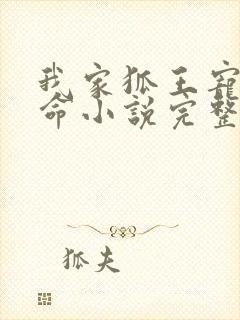 我家狐王寵
命小說完整
狐夫